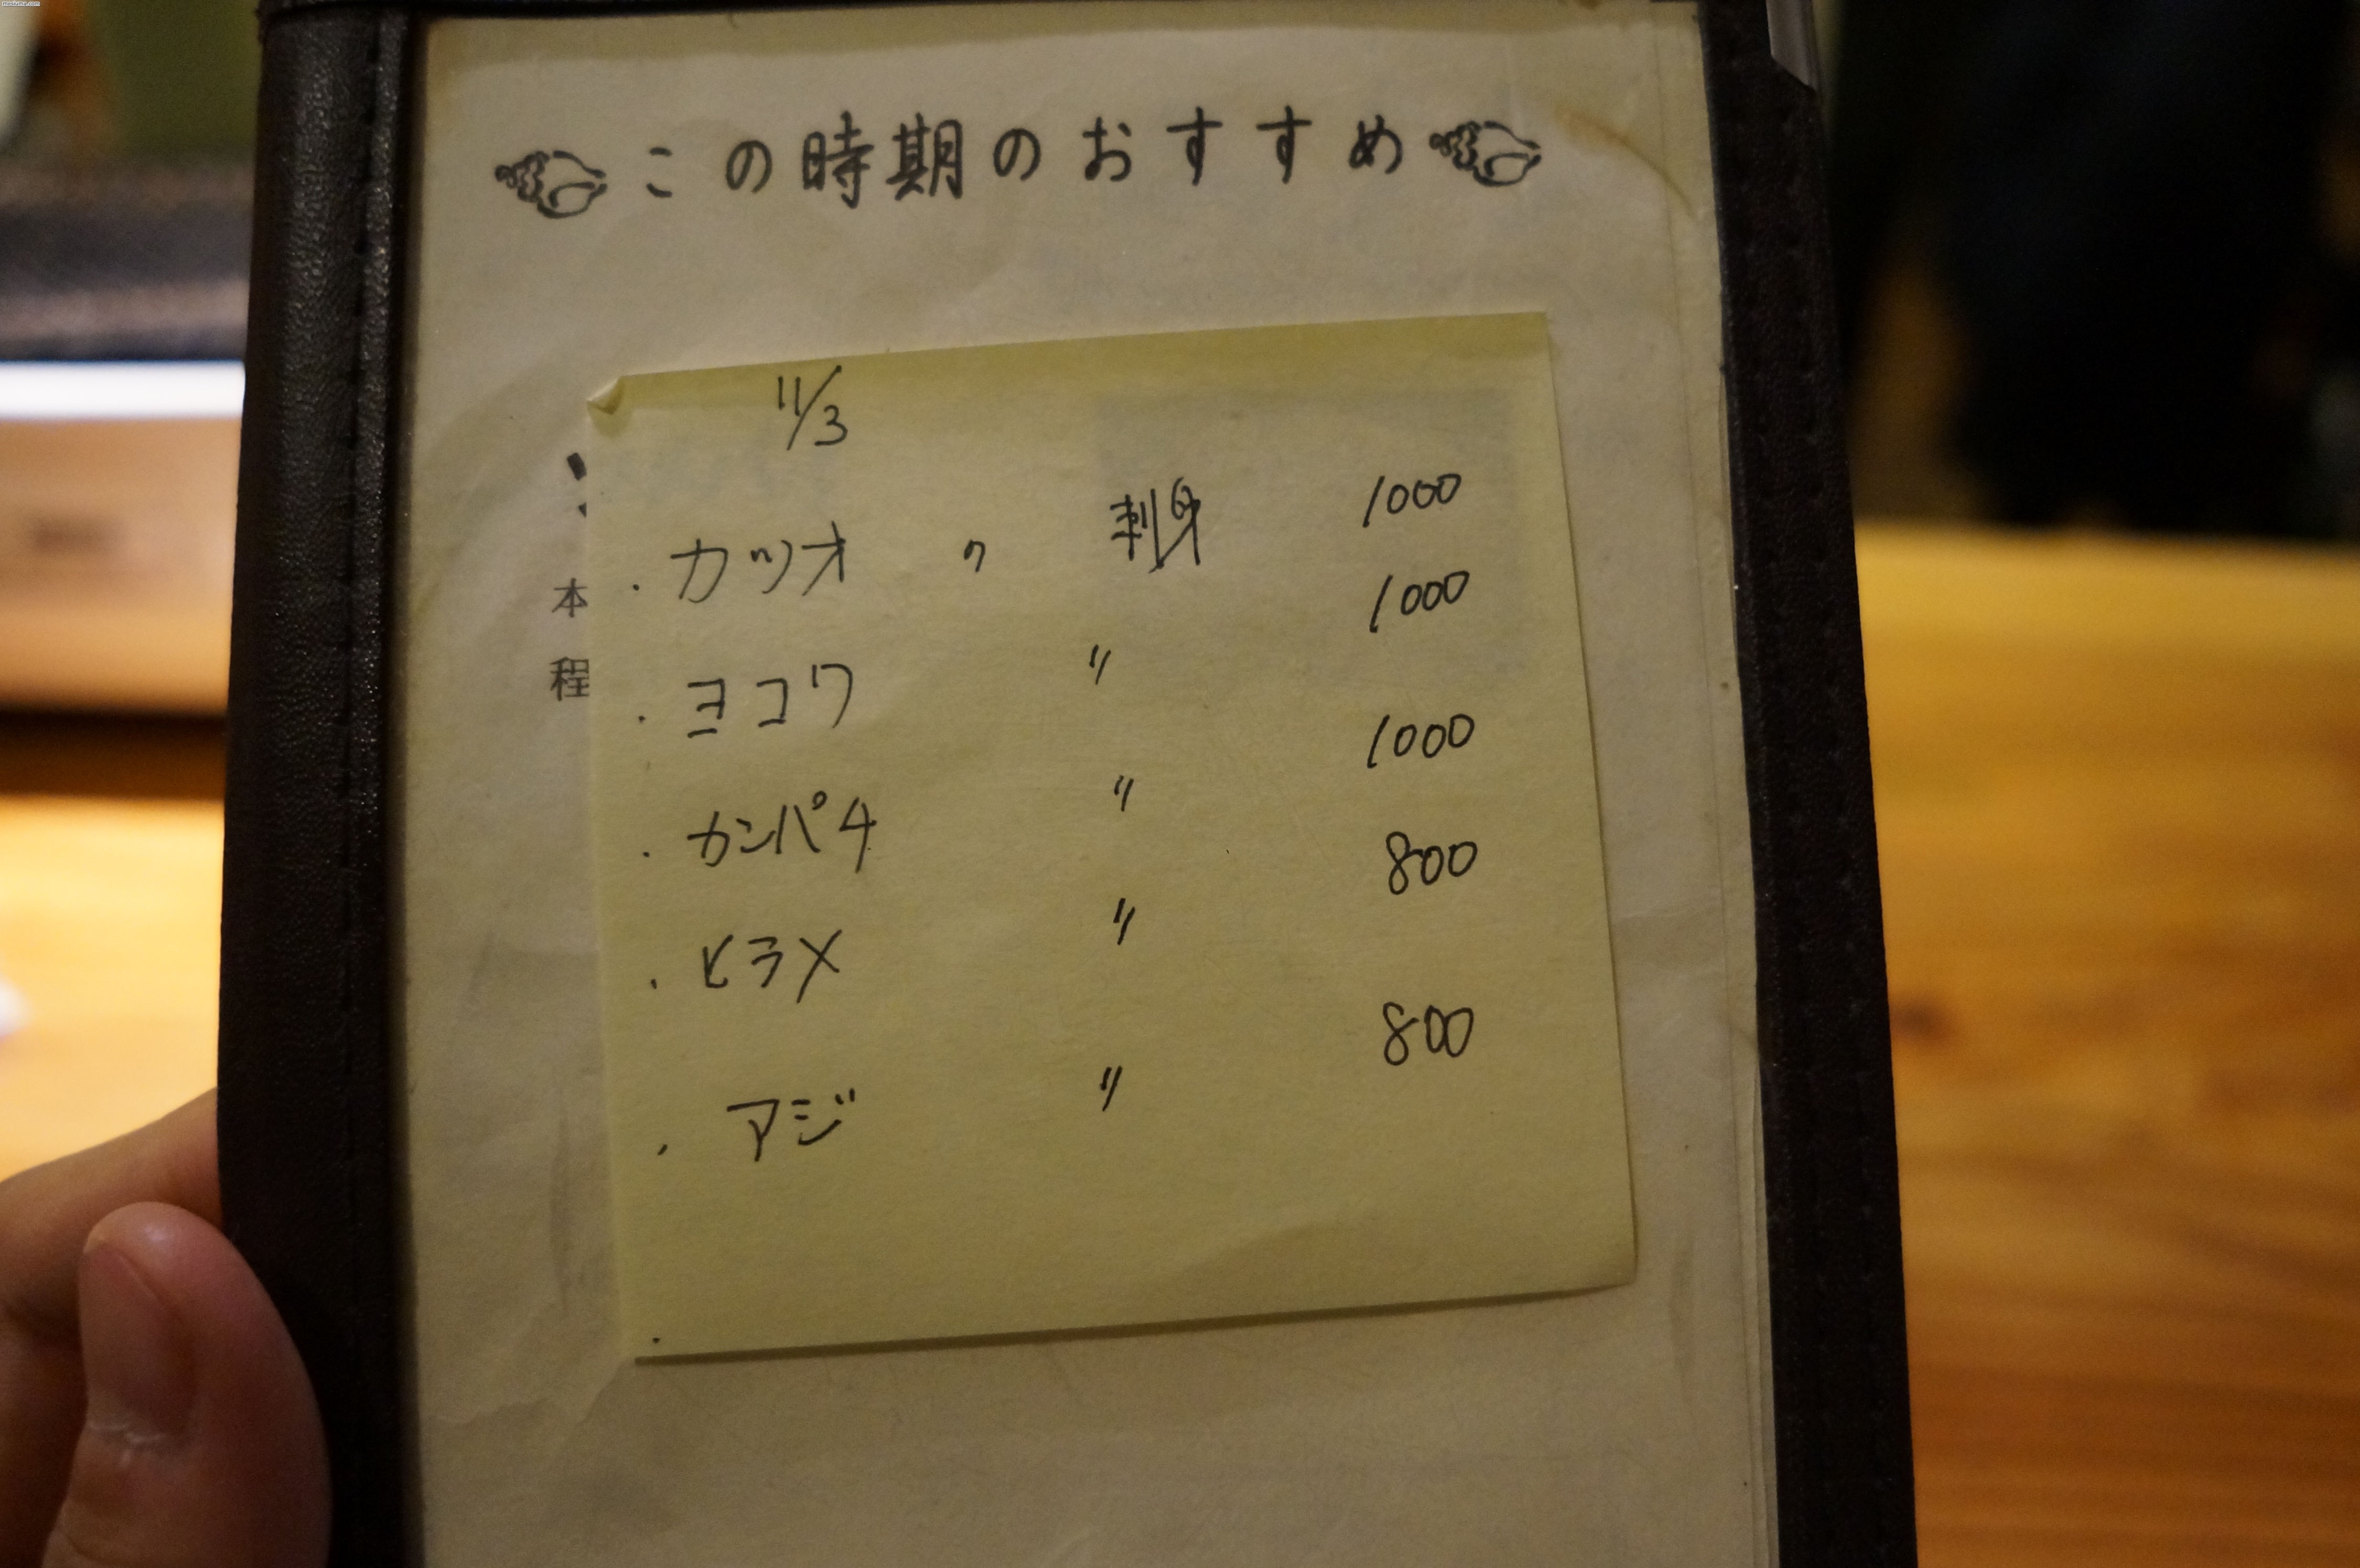 この時期のおすすめ
11/3
・カツオ の 刺身 1000
・ヨコワ 〃 1000
・カンパチ 〃 1000
・ヒラメ 〃 800
・アジ 〃 800
本
程